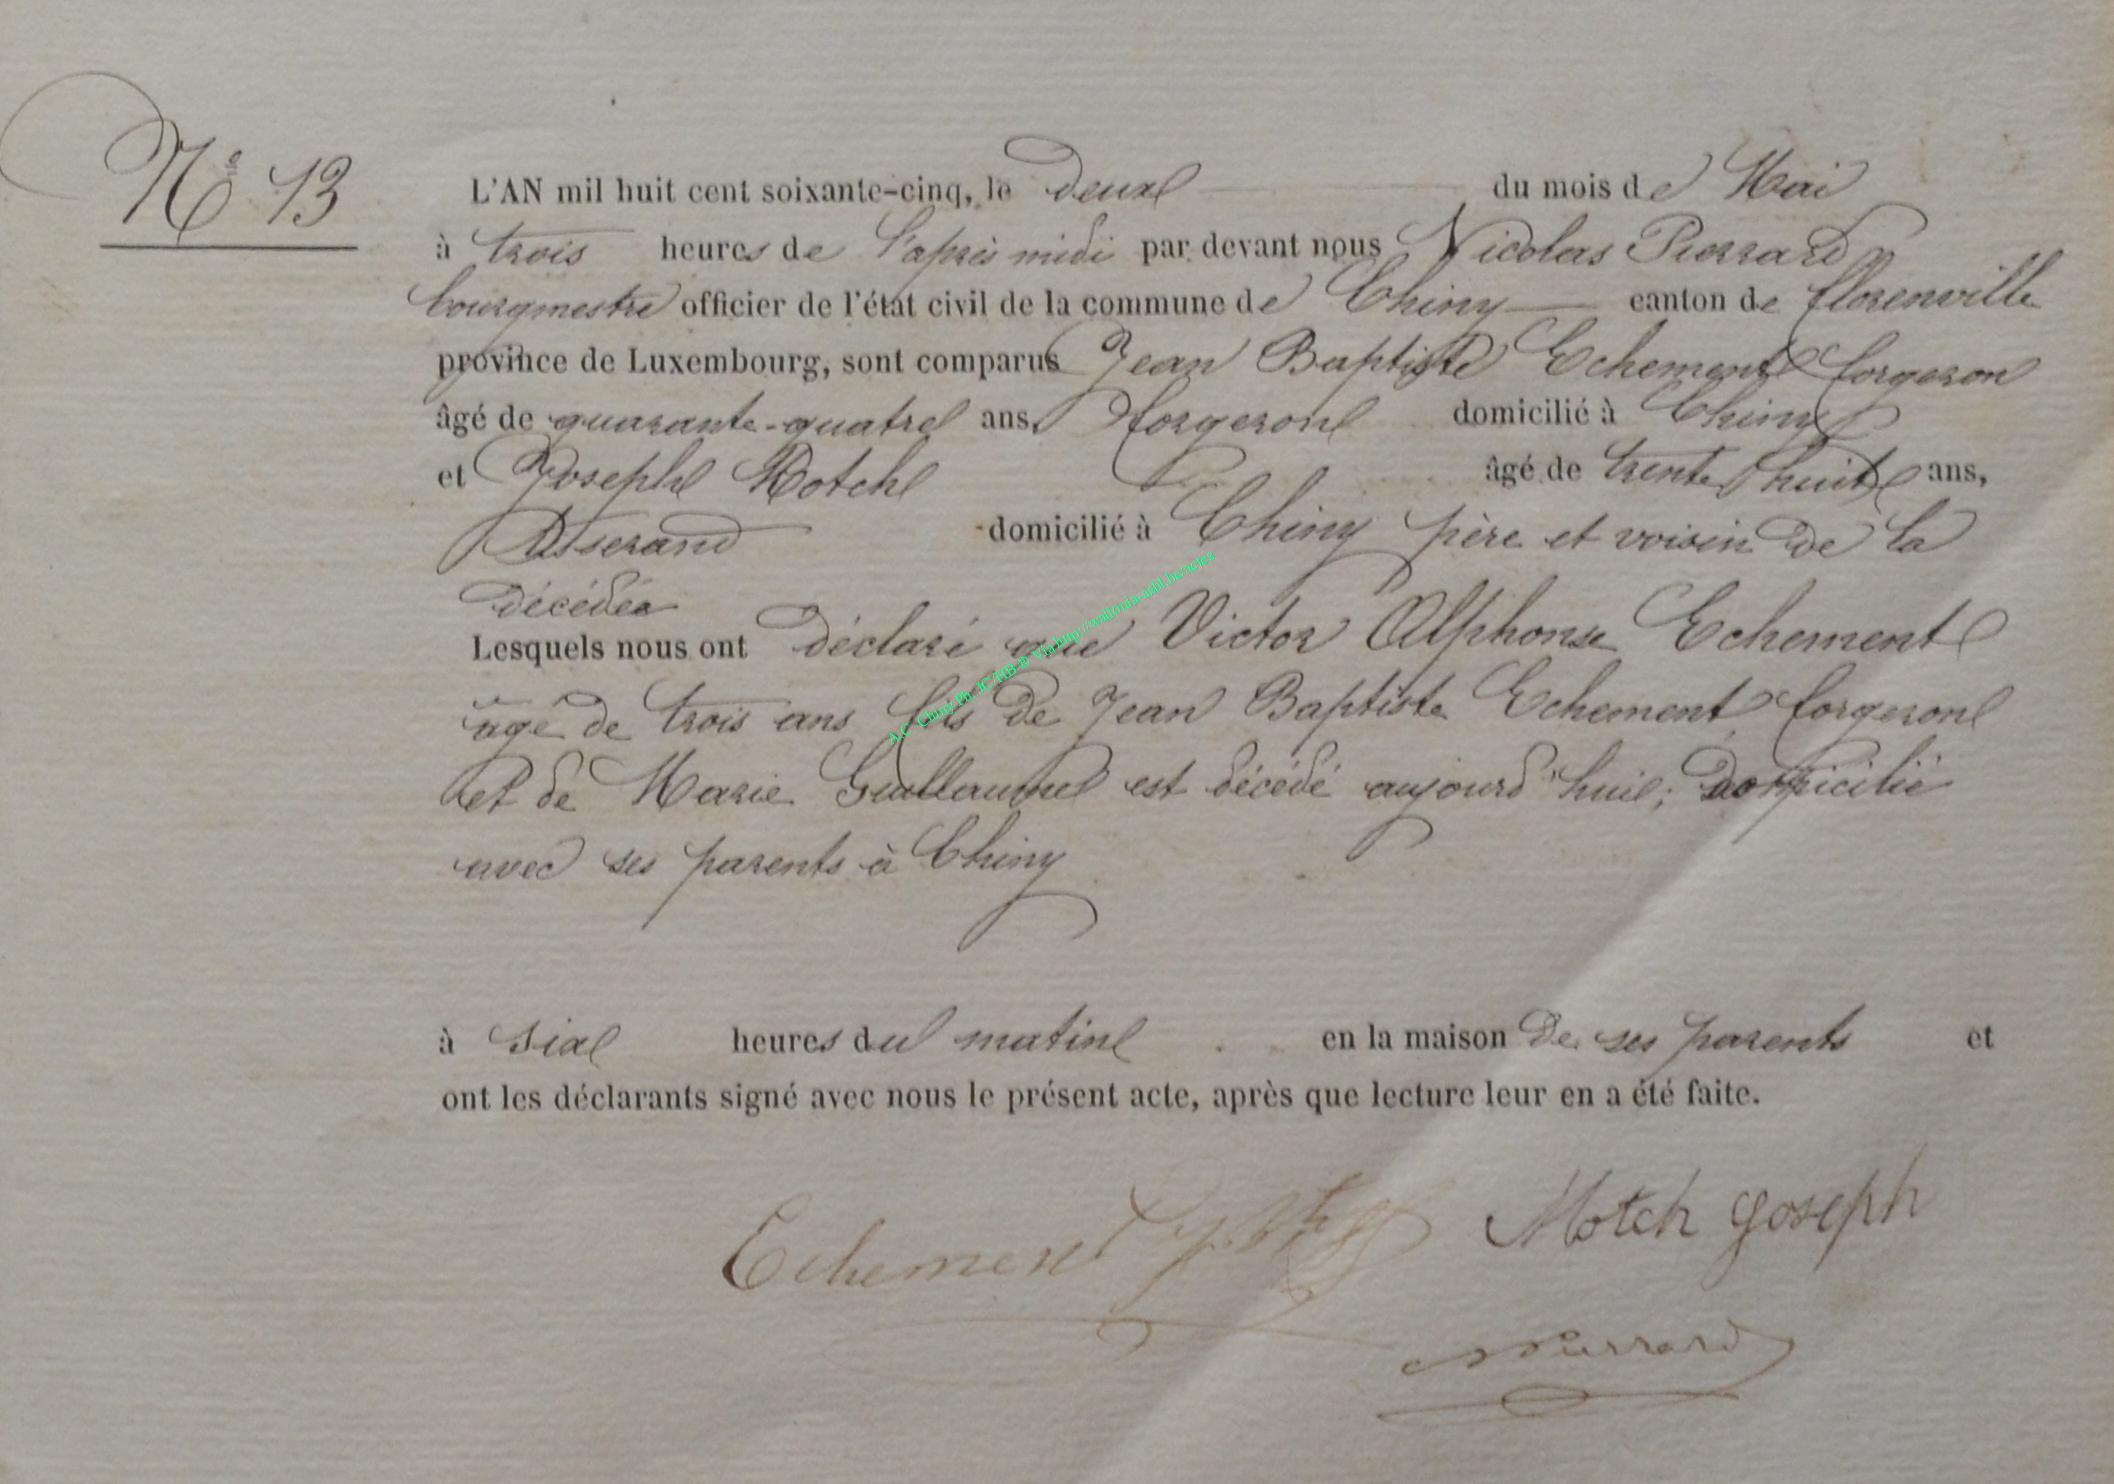 N° 13
L'AN mil huit cent soixante-cinq, le deux du mois de Mai
à trois heures de l'après midi par devant nous Nicolas Pierrard
bourgmestre officier de l'état civil de la commune de Chiny canton de florenville
province de Luxembourg, sont comparus Jean Baptiste Echement forgeron
âgé de quarante-quatre ans, forgeron domicilié à Chiny
et Joseph Motch âgé de trente huit ans,
tisserand domicilié à Chiny père et voisin de la
décédée
Lesquels nous ont déclaré que Victor Alphonse Echement
âgé de trois ans fils de Jean Baptiste Echement forgeron
et de Marie Guillaume est décédé aujourd'hui; domicilié
avec ses parents à Chiny
à six heures du matin en la maison de ses parents et
ont les déclarants signé avec nous le présent acte, après que lecture leur en a été faite.
Echement Motch Joseph
NPierrard
A.C. Chiny Ph. JC/HB © Via http://wallonia.asbl.be/actes